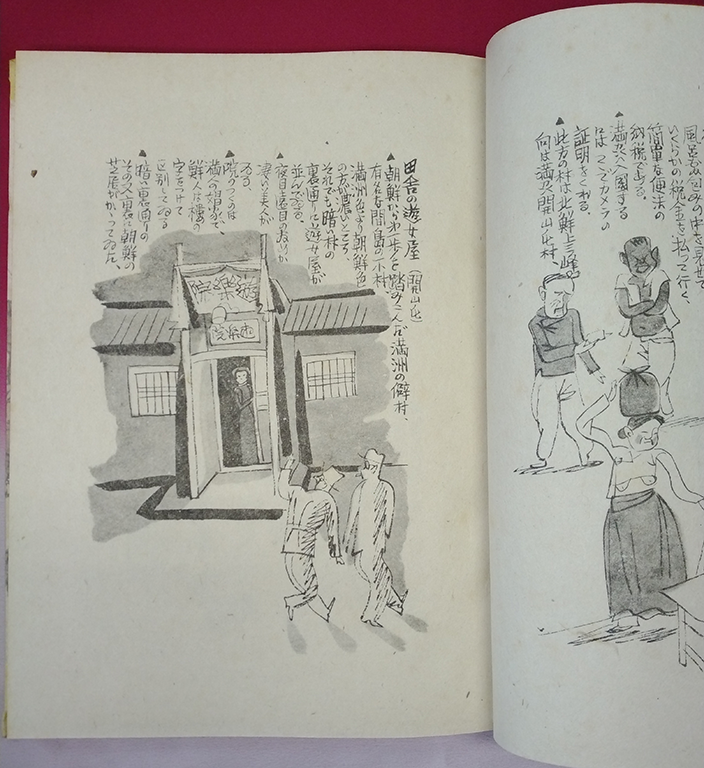 風呂
いくらかの税金を払って行く、
簡単な便法の
納税である。
▲満洲へ入国する
には
証明をくれる。
▲此方の村は北鮮上三峰、
向は満洲開山屯村、
田舎の遊女屋(開山屯)
▲朝鮮から
踏みこんだ満洲の僻村、
有名な間島の一小村
満洲色より朝鮮色
の方が濃いところ、
それでも暗い村の
裏通りに遊女屋が
並んでゐる。
▲夜目遠目の
凄い美人が
ゐる。
▲院のつくのは
満人の娼家で、
鮮人は樓の
字をつけて
区別してゐる
▲暗い裏通りの
その又裏に朝鮮の
芝居がかってゐた。
遊樂院
院